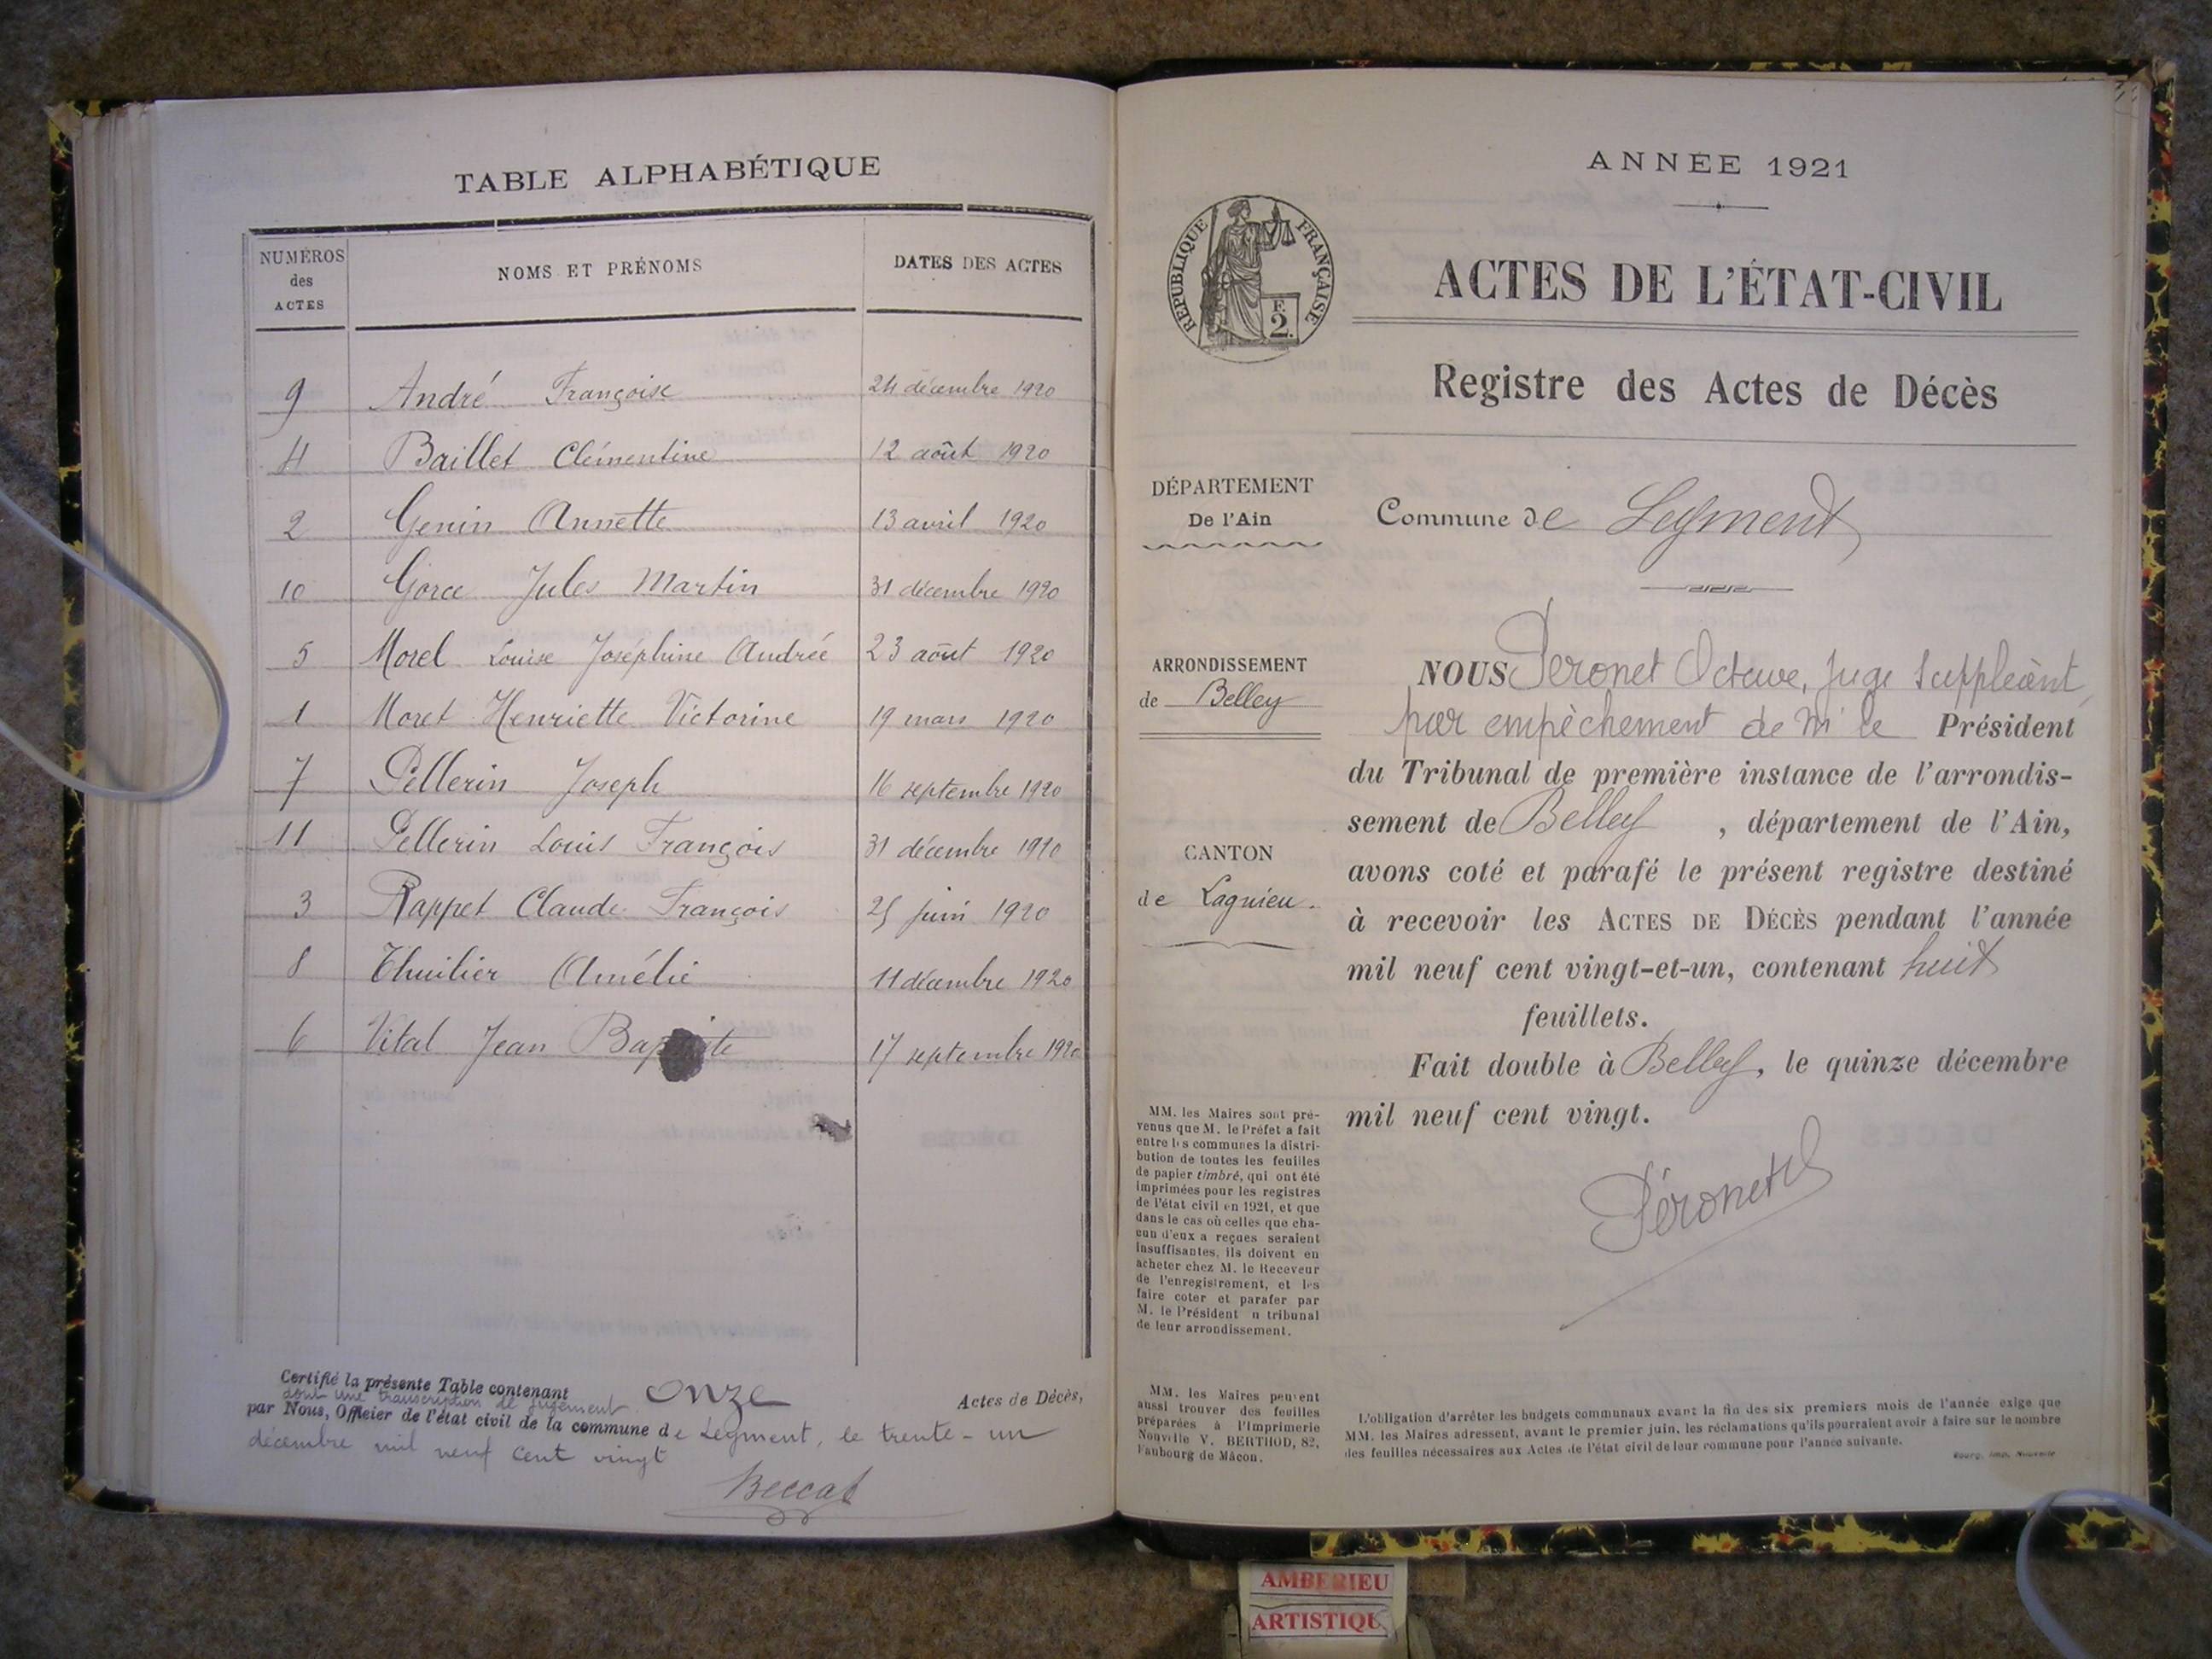 TABLE ALPHABÉTIQUE
NUMÉROS des ACTES NOMS ET PRÉNOMS DATES DES ACTES
9 André Françoise 24 décembre 1920
4 Baillet Clémentine 12 août 1920
2 Genin Annette 13 avril 1920
10 Gorce Jules Martin 31 décembre 1920
5 Morel Louise Joséphine Andrée 23 août 1920
1 Moret Henriette Victorine 19 mars 1920
7 Pellerin Joseph 16 septembre 1920
11 Pellerin Louis François 31 décembre 1920
3 Rappet Claude François 25 juin 1920
8 Thuilier Amélie 11 décembre 1920
6 Vital Jean Baptiste 17 septembre 1920
Certifié la présente Table contenant onze Actes de Décès,
dont une transcription de jugement
par Nous, Officier de l'état civil de la commune de Leyment, le trente-un
décembre mil neuf cent vingt
Beccat
ANNÉE 1921
RÉPUBLIQUE FRANÇAISE
F.
2.
ACTES DE L'ÉTAT-CIVIL
Registre des Actes de Décès
DÉPARTEMENT
De l'Ain
Commune de Leyment
ARRONDISSEMENT
de Belley
CANTON
de Lagnieu.
NOUS Peronet Octave, Juge suppléant,
par empêchement de Mr le Président
du Tribunal de première instance de l'arrondis-
sement de Belley, département de l'Ain,
avons coté et parafé le présent registre destiné
à recevoir les ACTES DE DÉCÈS pendant l'année
mil neuf cent vingt-et-un, contenant huit
feuillets.
Fait double à Belley, le quinze décembre
mil neuf cent vingt.
Péronet
MM. les Maires sont pré-
venus que M. le Préfet a fait
entre les communes la distri-
bution de toutes les feuilles
de papier timbré, qui ont été
imprimées pour les registres
de l'état civil en 1921, et que
dans le cas où celles que cha-
cun d'eux a reçues seraient
insuffisantes, ils doivent en
acheter chez M. le Receveur
de l'enregistrement, et les
faire coter et parafer par
M. le Président u tribunal
de leur arrondissement.
MM. les Maires peuvent
aussi trouver des feuilles
préparées à l'Imprimerie
Nouvelle V. BERTHOD, 82,
Faubourg de Mâcon.
L'obligation d'arrêter les budgets communaux avant la fin des six premiers mois de l'année exige que
MM. les Maires adressent, avant le premier juin, les réclamations qu'ils pourraient avoir à faire sur le nombre
des feuilles nécessaires aux Actes de l'état civil de leur commune pour l'année suivante.
Bourg, Imp. Nouvelle
AMBERIEU
ARTISTIQU